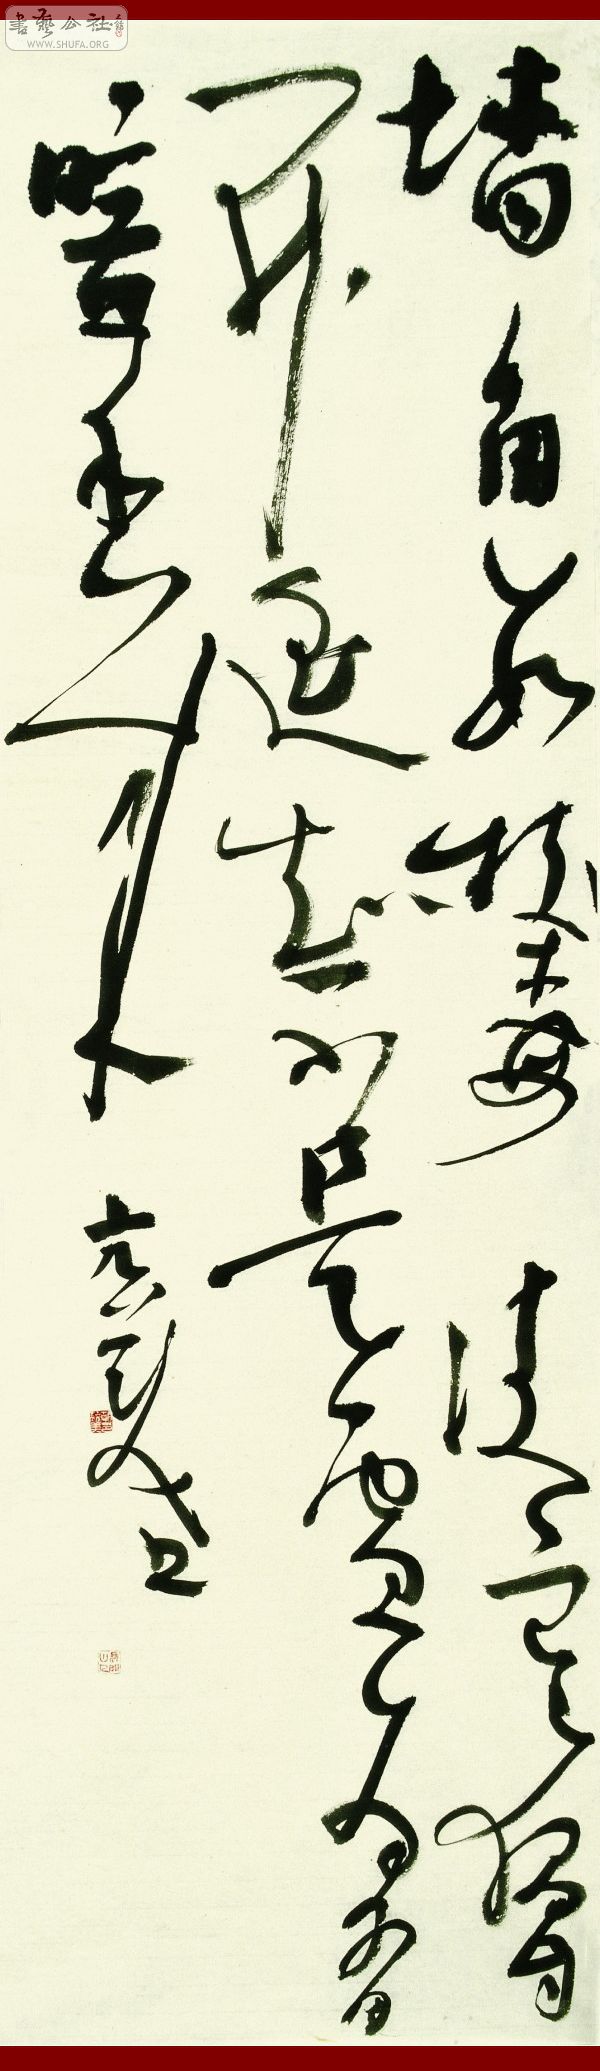 書藝公社
WWW.SHUFA.ORG
墙角数枝梅凌寒独自
开遥知不是雪为有
暗香来
书